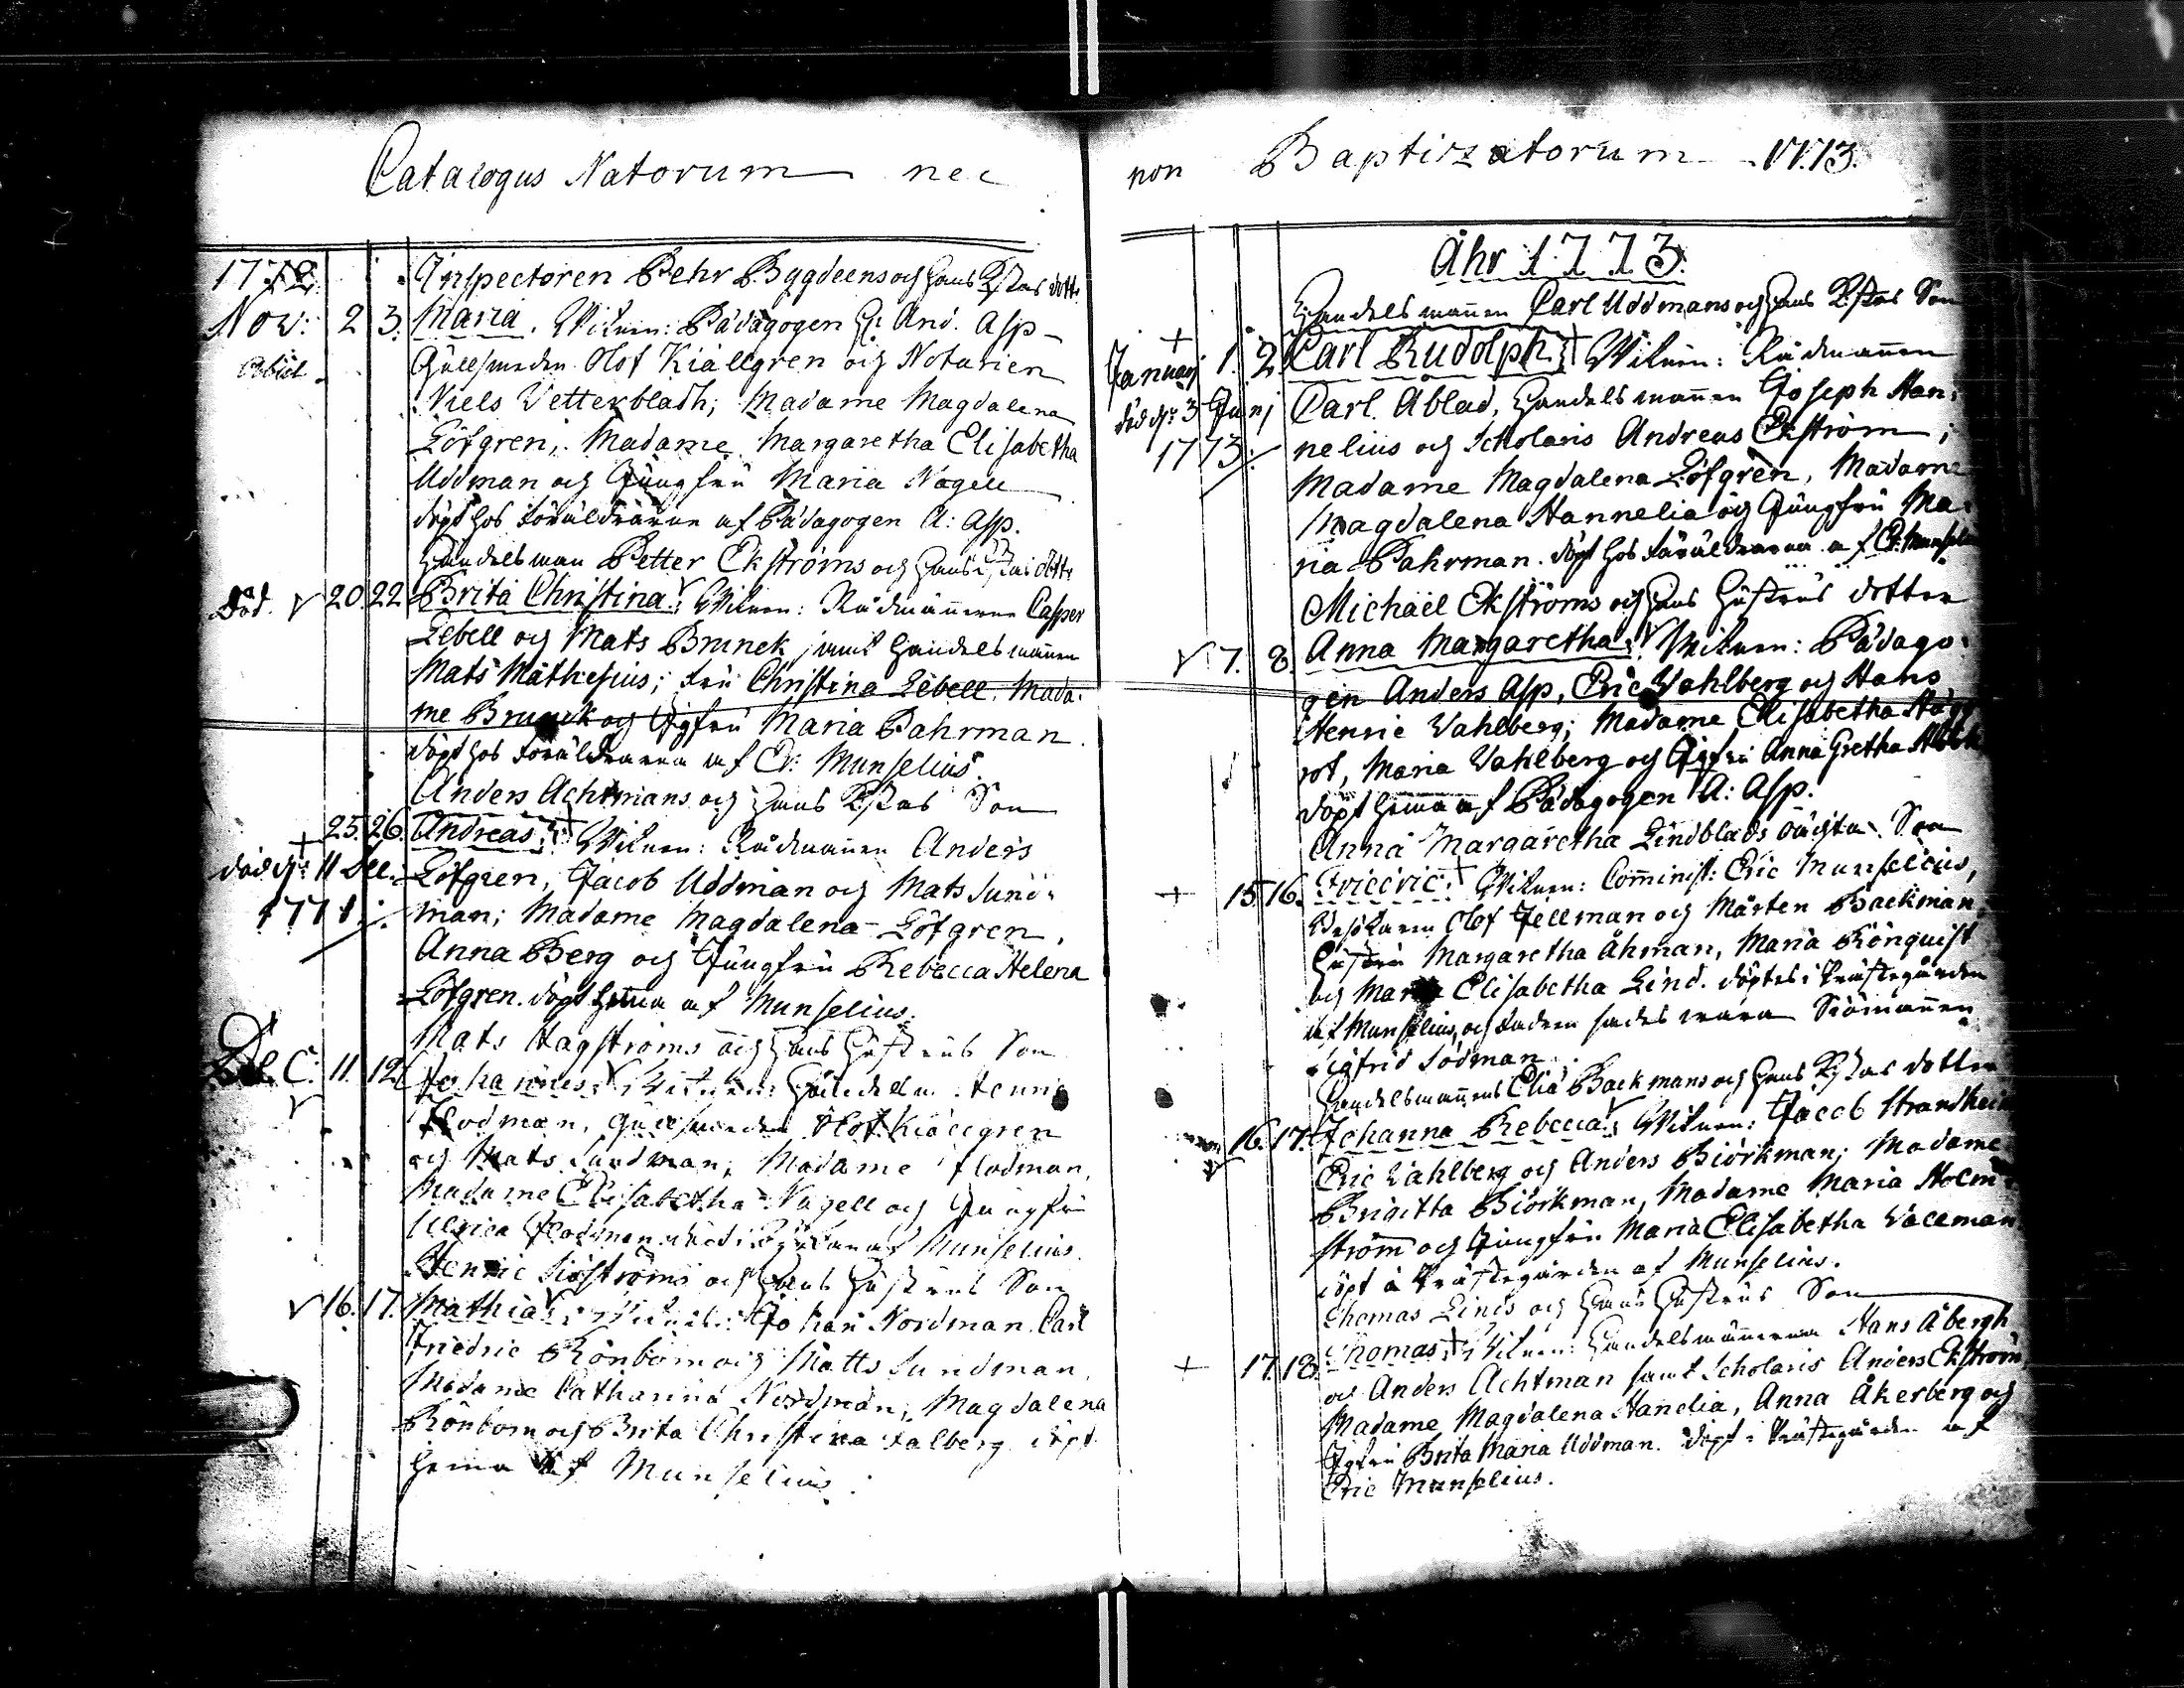 Catalogus Natorum nec
1772. Inspectoren Pehr Bygdeens och hans K:stas dotter
Nov: 2 3. Maria. Witnen: Pædagogen Hr And. Asp
abiit. Gesällen Olof Kiällgren och Notarien
Niels Vetterbladh; Madame Magdalena
Löfgren, Madame Margaretha Elisabetha
Uddman och Jungfru Maria Nagell
döpt hos Föräldrarne af Pædagogen A: Asp.
Handelsman Petter Ekströms och hans K:stas dotter
Död. 20. 22 Brita Christina. Witnen: Rådmännerne Casper
Lebell och Mats Brunck, samt Handelsmannen
Mats Mathesius; Fru Christina Lebell. Mada-
me Brunck och Jgfru Maria Pahrman.
döpt hos Föräldrarna af Er: Munselius.
Anders Achtmans och hans K:stas Son
25. 26. Andreas. Witnen: Rådmannen Anders
död d: 11 Dec. Löfgren, Jacob Uddman och Mats Sund-
177 man; Madame Magdalena Löfgren,
Anna Berg och Jungfru Rebecca Helena
Löfgren. döpt hema af Munselius.
Mats Hagströms och hans Hustrus Son
Dec: 11. 12. Johannes. Witnen: Handelsm. Henric
Flodman, Gesällen Olof Kiällgren
och Mats Sundman, Madame Flodman,
Madame Elisabetha Nagell och Jungfru
Ulrica Flodman. af Munselius.
Henric Siöströms och hans Hustrus Son
16. 17. Mathias. Witnen: Johan Nordman. Carl
Friedric Rönbom och Matts Sundman,
Madame Catharina Nordman, Magdalena
Rönbom och Brita Christina Falberg döpt
hema af Munselius.
non Baptizatorum 1773.
Åhr 1773.
Handelsmannen Carl Uddmans och hans K:stas Son
Januarj 1. 2 Carl Rudolph. Witnen: Rådmannen
död d: 3 Junj Carl Ablad, Handelsmannen Joseph Han-
1773. nelius och Scholaris Andreas Ekström;
Madame Magdalena Löfgren, Madame
Magdalena Hannelia och Jungfru Ma-
ria Pahrman. döpt hos Föräldrarna af Er: Munselius
Michaël Ekströms och hans Hustrus dotter
7. 8. Anna Margaretha. Witnen: Pædago-
gen Anders Asp, Eric Wahlberg och Hans
Henric Wahlberg; Madame Elisabetha
rot, Maria Wahlberg och Jgfru Anna Gretha
döpt hema af Pædagogen A: Asp.
Anna Margaretha Lindblads oächta Son
15 16. Friedric. Witnen: Comminist: Eric Munselius,
Olof Jellman och Mårten Backman,
Hustru Margaretha Åhman, Maria Rönquist
och Maria Elisabetha Lind. döptes i Prästegården
af Munselius, och Fadren sades wara Siömannen
Sigfrid Södman.
Handelsmannens Elia Backmans och hans K:stas dotter
16. 17. Johanna Rebecca. Witnen: Jacob Strandheim
Eric Wahlberg och Anders Biörkman; Madame
Brigitta Biörkman, Madame Maria Holm-
ström och Jungfru Maria Elisabetha Vallman
döpt å Prästegården af Munselius.
Thomas Linds och hans Hustrus Son
17. 18. Thomas. Witnen: Handelsmännerna Hans Åbergh
och Anders Achtman samt Scholaris Anders Ekström
Madame Magdalena Hanelia, Anna Åkerberg och
Jgfru Brita Maria Uddman. döpt i Prästegården af
Eric Munselius.